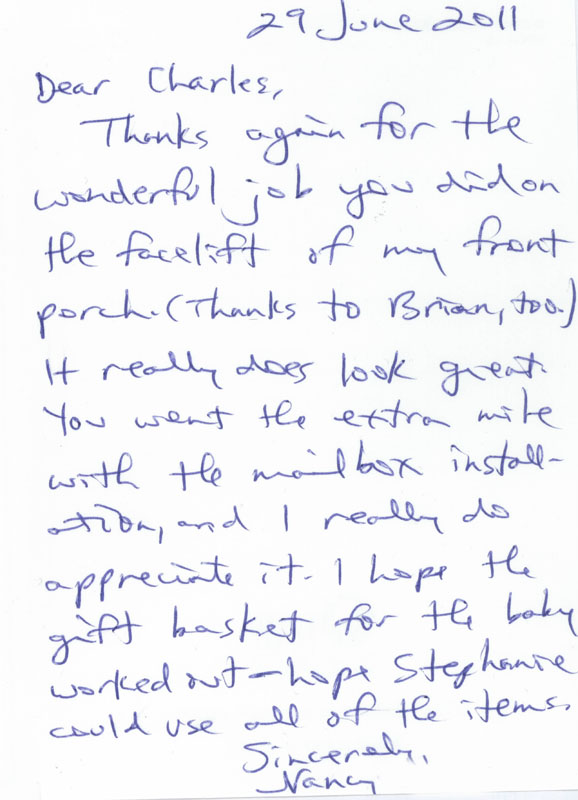 29 June 2011
Dear Charles,
Thanks again for the
wonderful job you did on
the facelift of my front
porch. (Thanks to Brian, too.)
It really does look great.
You went the extra mile
with the mailbox install-
ation, and I really do
appreciate it. I hope the
gift basket for the baby
worked out—hope Stephanie
could use all of the items.
Sincerely,
Nancy